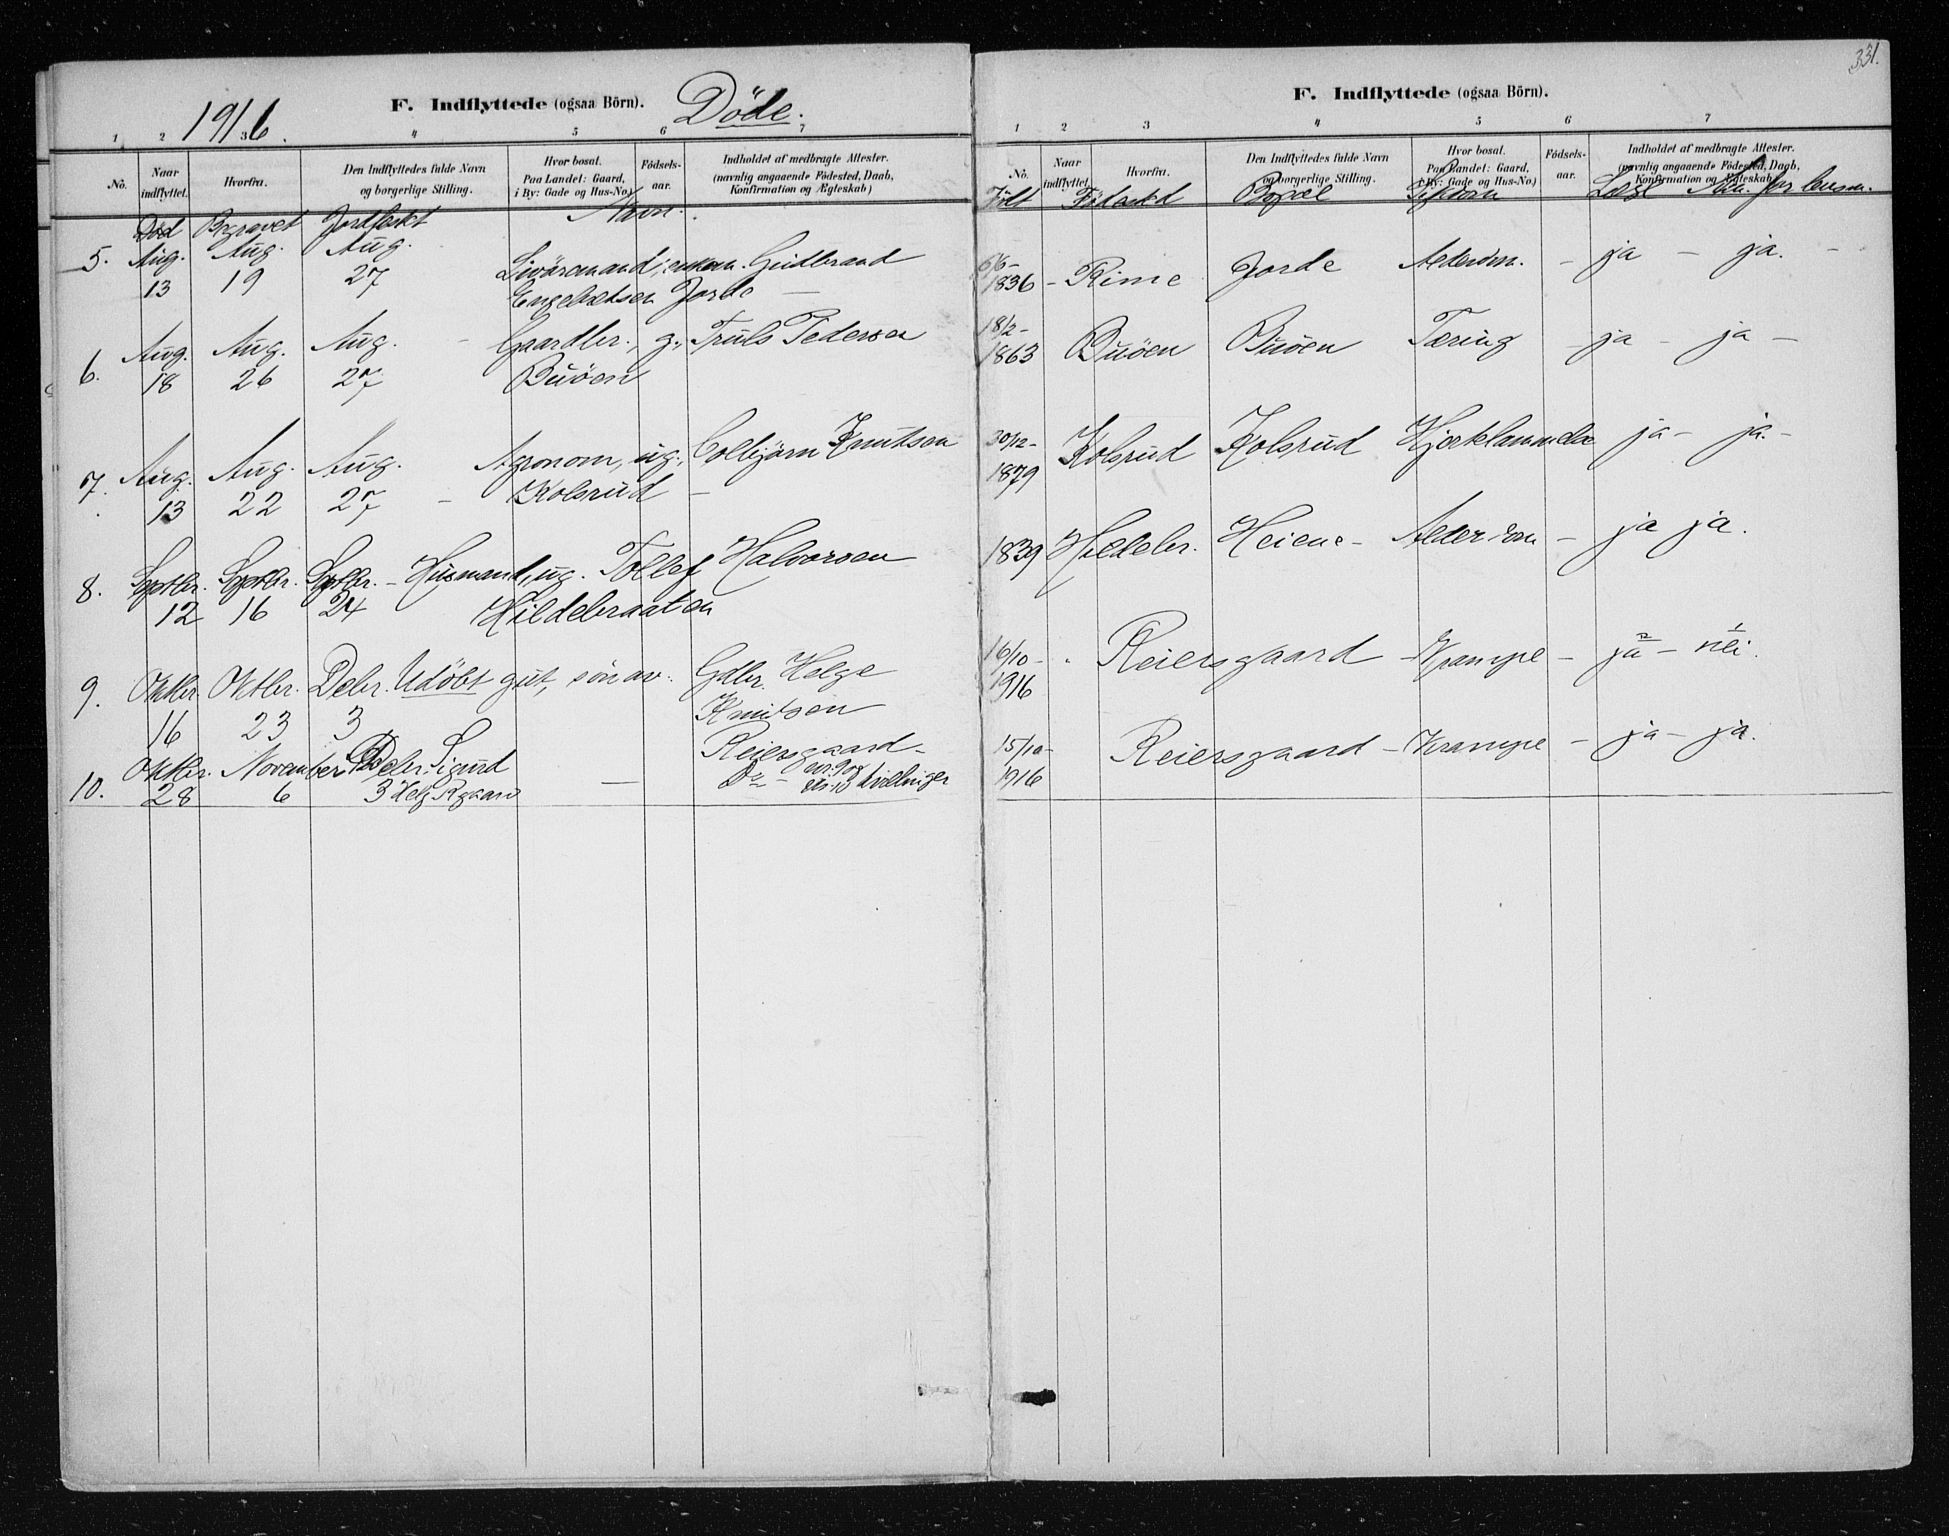 1916.
F. Indflyttede (ogsaa Börn).
Döde.
1 2 3 4 5 6 7
No.
Naar indflyttet.
Hvorfra.
Den Indflyttedes fulde Navn og borgerlige Stilling.
Hvor bosat. Paa Landet: Gaard, i By: Gade og Hus-No.)
Födsels-aar.
Indholdet af medbragte Attester. (navnlig angaaende Födested, Daab, Konfirmation og Ægteskab)
Död Begravet Jordfæstet Navn.
5. Aug. Aug. Aug. Livöremand, enkem. Gudbrand
13 19 27 Engebretsen Jorde —
6. Aug. Aug. Aug. Gaardbr., g., Truls Pedersen
18 26 27 Buöen
7. Aug. Aug. Aug. Agronom, ug., Colbjörn Knutsen
13 22 27 – Kolsrud –
8. Septbr. Septbr. Septbr. – Husmand, ug. Tollef Halvorsen
12 16 24 Hildebraaten
9. Oktbr. Oktbr. Debr. Udöbt gut, sön av Gdbr. Helge
16 23 3 Knutsen
Reiersgaard –
10. Oktbr. November Debr. Sigurd
28 6 3 — Do – nr. 9 og
nr. 10 tvillinger
331.
F. Indflyttede (ogsaa Börn).
1 2 3 4 5 6 7
No.
Naar indflyttet.
Hvorfra.
Den Indflyttedes fulde Navn og borgerlige Stilling.
Hvor bosat. Paa Landet: Gaard, i By: Gade og Hus-No.)
Födsels-aar.
Indholdet af medbragte Attester. (navnlig angaaende Födested, Daab, Konfirmation og Ægteskab)
Födt Födested Bopæl Sygdom Læge
6/6–
1836 – Rime Jorde Alderdom. – ja – ja. –
18/2–
1863 Buöen Buöen Tæring – ja – ja –
30/12–
1879 Kolsrud Kolsrud Hjertelammelse ja – ja. –
1839 Hildebr. Heiene – Alderdom – ja ja.
16/10–
1916 Reiersgaard – Krampe – ja – nei.
15/10–
1916 Reiersgaard – Krampe – ja – ja.